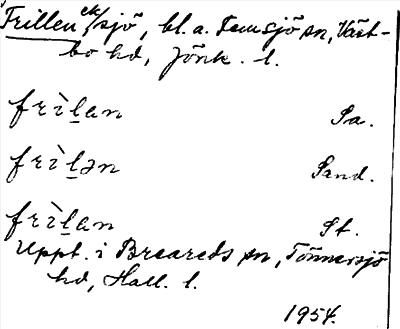 Frillen el./sjö, bl. a. Femsjö sn, Väst-
bo hd, Jönk. l.
frìlan Sa.
frìlən Sand.
frìlan St.
Uppt. i Breareds sn, Tönnersjö
hd, Hall. l.
1954.